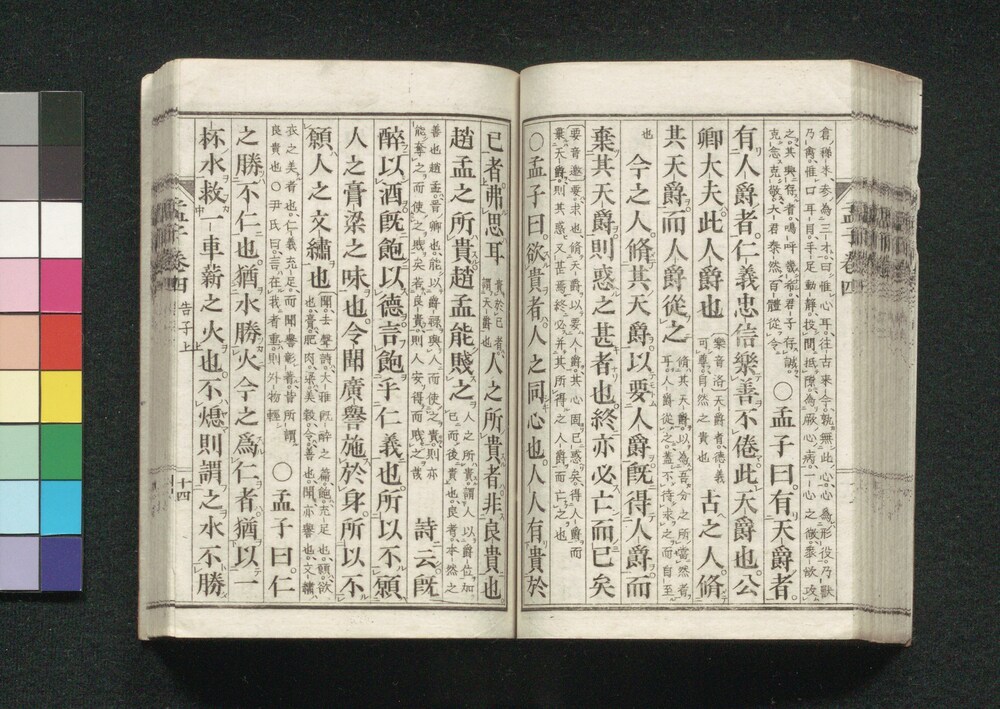 倉稊米參為三才曰惟心耳往古來今孰無此心心為形役乃獸
乃禽惟口耳目手足動靜投間抵隙為厥心病一心之微衆欲攻
之其與存者嗚呼幾希君子存誠
克念克敬天君泰然百體從令
○孟子曰有天爵者
有人爵者仁義忠信樂善不倦此天爵也公
卿大夫此人爵也
樂音洛天爵者德義
可尊自然之貴也
古之人脩
其天爵而人爵從之
脩其天爵以為吾分之所當然者
耳人爵從之蓋不待求之而自至
也
今之人脩其天爵以要人爵既得人爵而
棄其天爵則惑之甚者也終亦必亡而已矣
要音邀要求也脩天爵以要人爵其心固已惑矣得人爵而
棄天爵則其惑又甚焉終必并其所得之人爵而亡之也
○孟子曰欲貴者人之同心也人人有貴於
己者弗思耳
貴於己者
謂天爵也
人之所貴者非良貴也
趙孟之所貴趙孟能賤之
人之所貴謂人以爵位加
己而後貴也良者本然之
善也趙孟晉卿也能以爵祿與人而使之貴則亦
能奪之而使之賤矣若良貴則人安得而賤之哉
詩云既
醉以酒既飽以德言飽乎仁義也所以不願
人之膏粱之味也令聞廣譽施於身所以不
願人之文繡也
聞去聲詩大雅既醉之篇飽充足也願欲
也膏肥肉粱美穀令善也聞亦譽也文繡
衣之美者也仁義充足而聞譽彰著皆所謂
良貴也○尹氏曰言在我者重則外物輕
○孟子曰仁
之勝不仁也猶水勝火今之爲仁者猶以一
杯水救一車薪之火也不熄則謂之水不勝
孟子卷四
告子上
十四
孟子卷四